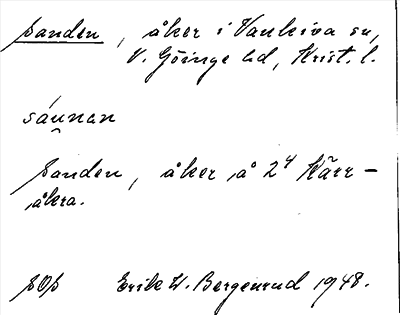 Sanden, åker i Vankiva sn,
V. Göinge hd, Krist. l.
sáu̯nan
Sanden, åker å 2⁴ Kärr-
åkra.
SOS Erik W. Bergenrud 1948.